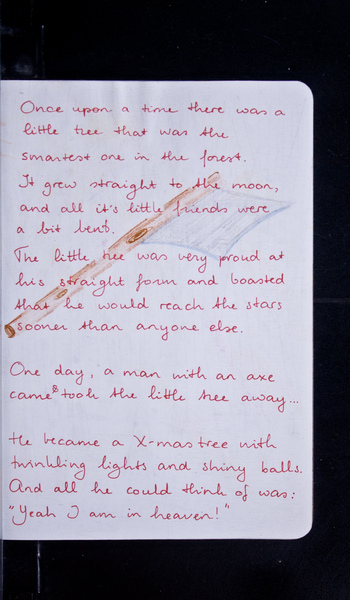 Once upon a time there was a
little tree that was the
smartest one in the forest.
It grew straight to the moon,
and all it's little friends were
a bit bent.
The little tree was very proud at
his straight form and boasted
that he would reach the stars
sooner than anyone else.
One day, a man with an axe
came & took the little tree away...
He became a X-mas tree with
twinkling lights and shiny balls.
And all he could think of was:
"Yeah I am in heaven!"